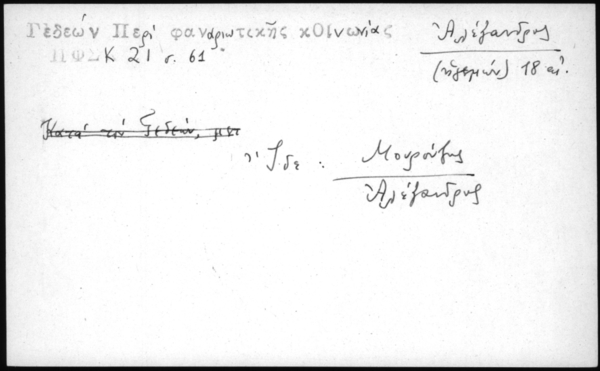 Γεδεών Περί φαναριωτικῆς κΟΙνωνίας
ΠΦΣΚ 21 σ. 61
Ἀλέξανδρος
(ἡγεμών) 18 αἰ.
Κατά τόν Γεδεών, μετ
Ἴδε : Μουρούζης
Ἀλέξανδρος